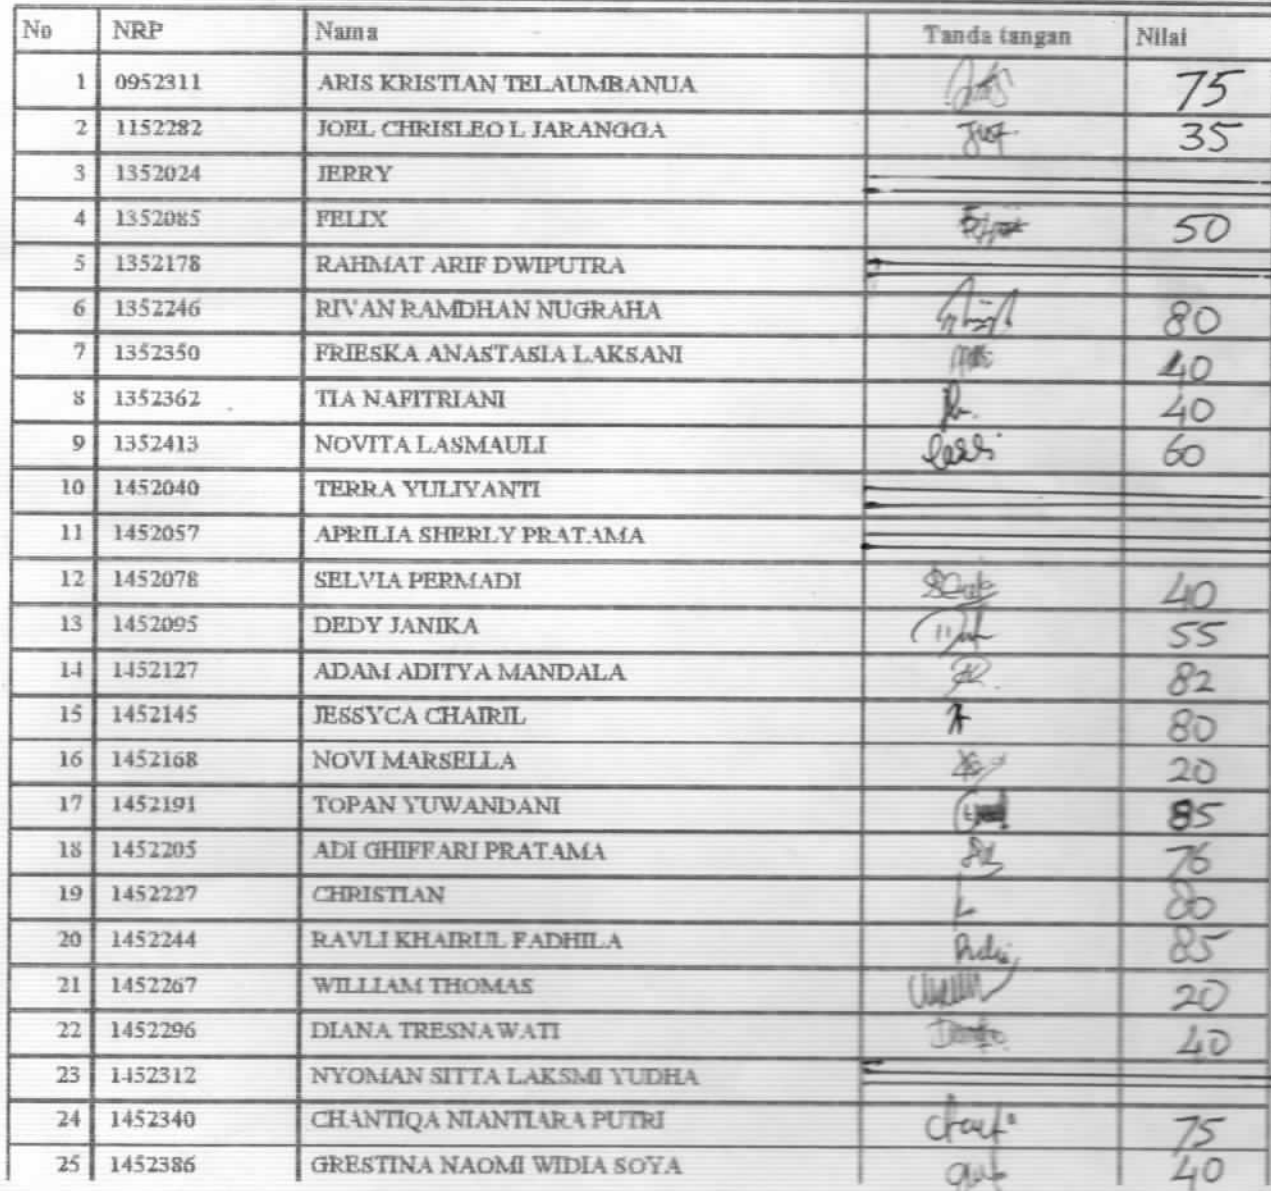 No NRP Nama Tanda tangan Nilai
1 0952311 ARIS KRISTIAN TELAUMBANUA 75
2 1152282 JOEL CHRISLEO L JARANGGA 35
3 1352024 JERRY
4 1352085 FELIX 50
5 1352178 RAHMAT ARIF DWIPUTRA
6 1352246 RIVAN RAMDHAN NUGRAHA 80
7 1352350 FRIESKA ANASTASIA LAKSANI 40
8 1352362 TIA NAFITRIANI 40
9 1352413 NOVITA LASMAULI 60
10 1452040 TERRA YULIYANTI
11 1452057 APRILIA SHERLY PRATAMA
12 1452078 SELVIA PERMADI 40
13 1452095 DEDY JANIKA 55
14 1452127 ADAM ADITYA MANDALA 82
15 1452145 JESSYCA CHAIRIL 80
16 1452168 NOVI MARSELLA 20
17 1452191 TOPAN YUWANDANI 85
18 1452205 ADI GHIFFARI PRATAMA 76
19 1452227 CHRISTIAN 80
20 1452244 RAVLI KHAIRUL FADHILA 85
21 1452267 WILLIAM THOMAS 20
22 1452296 DIANA TRESNAWATI 40
23 1452312 NYOMAN SITTA LAKSMI YUDHA
24 1452340 CHANTIQA NIANTIARA PUTRI 75
25 1452386 GRESTINA NAOMI WIDIA SOYA 40